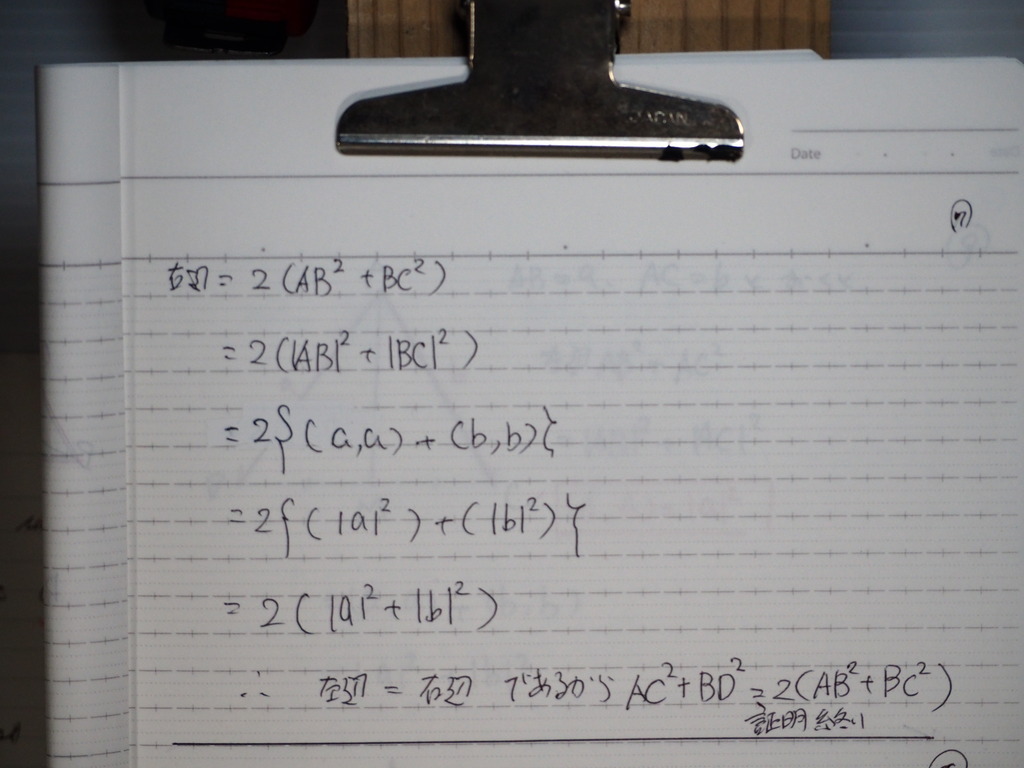 JAPAN
Date
右辺 = 2(AB² + BC²)
= 2(|AB|² + |BC|²)
= 2{(a,a) + (b,b)}
= 2{(|a|²) + (|b|²)}
= 2(|a|² + |b|²)
∴ 左辺 = 右辺 であるから AC² + BD² = 2(AB² + BC²)
証明終り